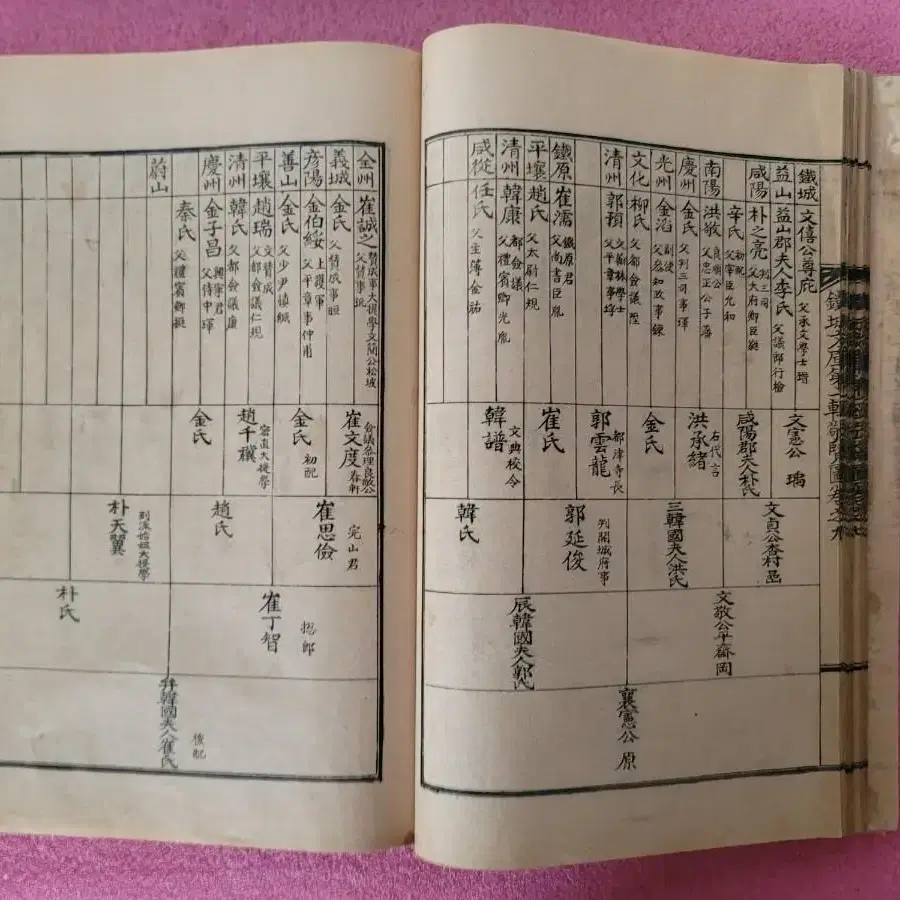 鐵城
益山
咸陽
南陽
慶州
光州
文化
清州
鐵原
平壤
清州
咸從
文僖公尊庇
父承文學士瑨
益山郡夫人李氏
父議郎行檢
朴之亮
判三司
父大府卿臣蕤
辛氏
初配
父宰臣允和
洪敬
良順公
父忠正公子藩
金氏
父判三司事琿
金滔
副使
父叅知政事鍊
柳氏
父都僉議陞
郭預
文翰林學士
父平章事
崔濡
鐵原君
父尚書臣胤
趙氏
父太尉仁規
韓康
都僉議
父禮賓卿光胤
任氏
父主簿金祐
文憲公 瑀
咸陽郡夫人朴氏
洪承緒
右代言
金氏
郭雲龍
都津寺長
崔氏
韓譜
文典校令
文貞公杏村嵒
三韓國夫人洪氏
郭延俊
判開城府事
韓氏
文敬公平齋岡
辰韓國夫人郭氏
襄憲公 原
全州
義城
彦陽
善山
平壤
清州
慶州
蔚山
崔誠之
贊成事大提學文簡公松坡
父贊事毗
金氏
父贊成事晅
金伯綏
上護軍
父平章事仲甫
金氏
父少尹
趙瑞
文贊成
父都僉議仁規
韓氏
父都僉議康
金子昌
興寧君
父侍中琿
秦氏
父禮賓卿挺
崔文度
僉議叅理良敬公春軒
金氏
初配
趙千驥
密直大提學
金氏
崔思儉
完山君
趙氏
朴天翼
朴氏
崔丁智
摠郎
弁韓國夫人崔氏
後配